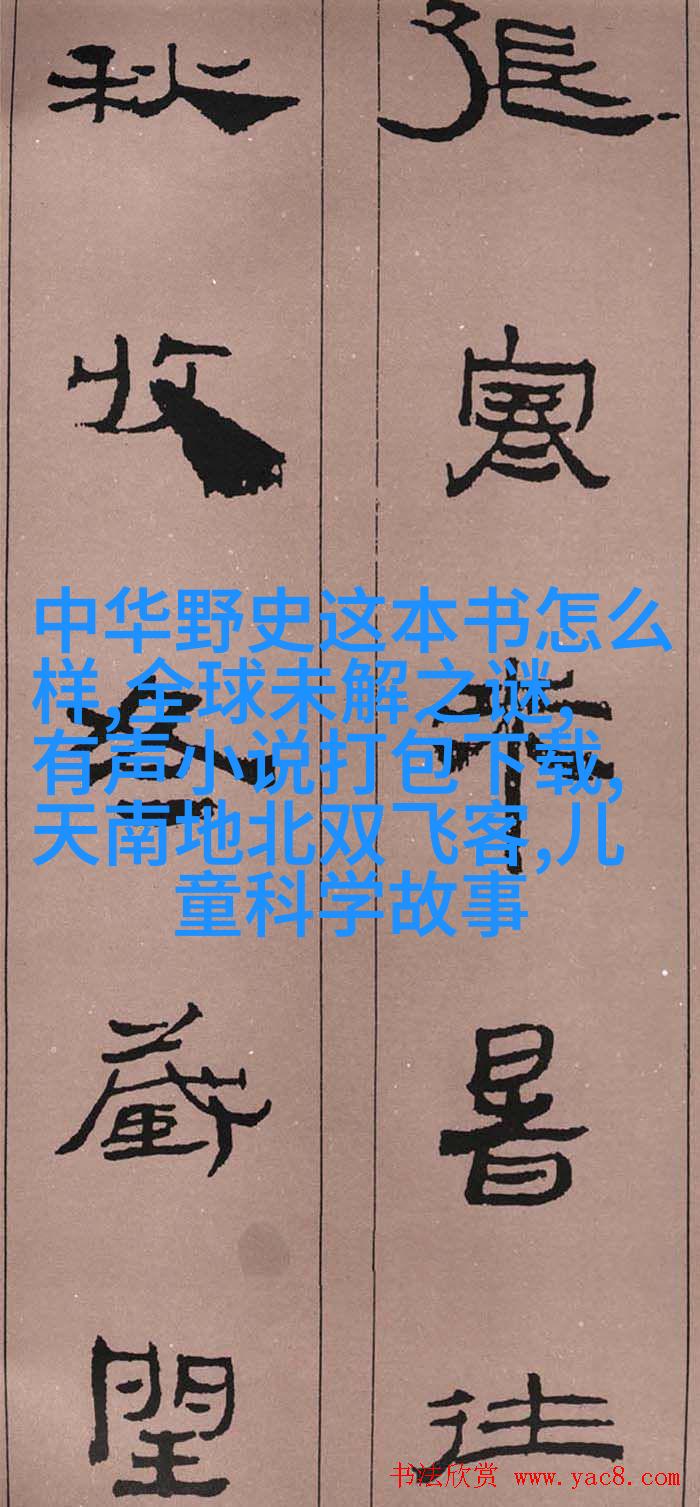 張寒來暑往
秋收冬藏閏
中华野史这本书怎么
样,全球未解之谜,
有声小说打包下载,
天南地北双飞客,儿
童科学故事
书法欣赏 www.yac8.com